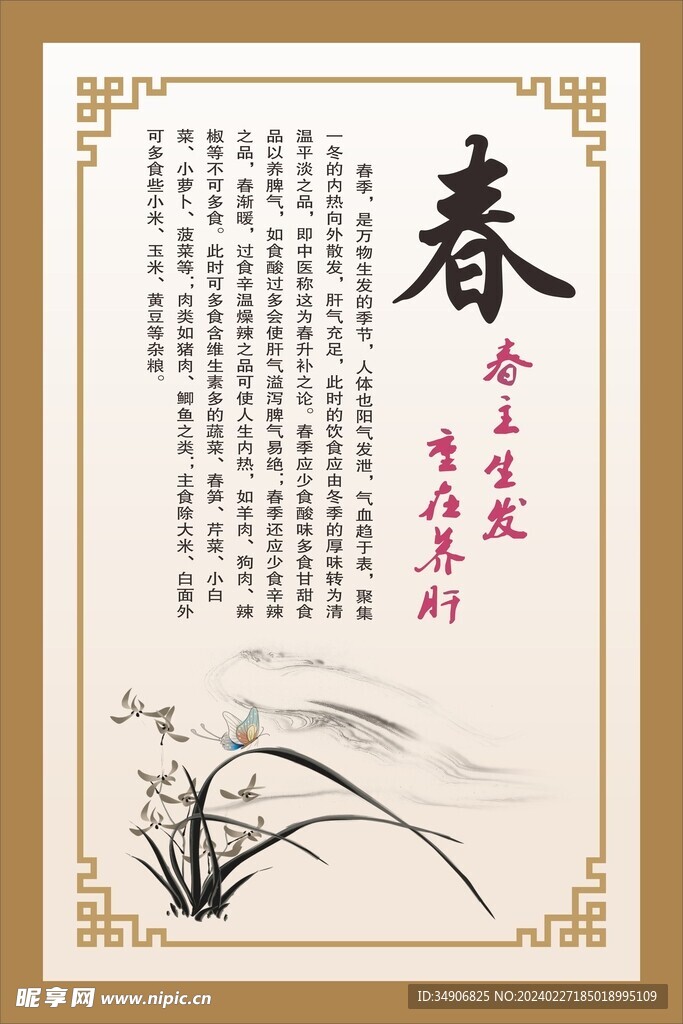 春
春主生发
重在养肝
春季，是万物生发的季节，人体也阳气发泄，气血趋于表，聚集
一冬的内热向外散发，肝气充足，此时的饮食应由冬季的厚味转为清
温平淡之品，即中医称这为春升补之论。春季应少食酸味多食甘甜食
品以养脾气，如食酸过多会使肝气溢泻脾气易绝；春季还应少食辛辣
之品，春渐暖，过食辛温燥辣之品可使人生内热，如羊肉、狗肉、辣
椒等不可多食。此时可多食含维生素多的蔬菜、春笋、芹菜、小白
菜、小萝卜、菠菜等；肉类如猪肉、鲫鱼之类；主食除大米、白面外
可多食些小米、玉米、黄豆等杂粮。
昵享网 www.nipic.cn
ID:34906825 NO:20240227185018995109